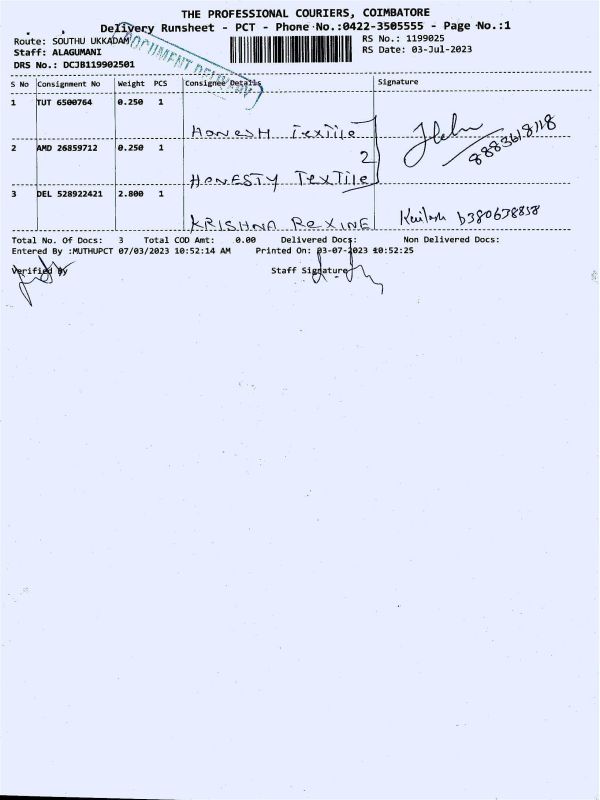 THE PROFESSIONAL COURIERS, COIMBATORE
Delivery Runsheet - PCT - Phone No.:0422-3505555 - Page No.:1
Route: SOUTHU UKKADAM
DOCUMENT DELIVERY
RS No.: 1199025
Staff: ALAGUMANI
RS Date: 03-Jul-2023
DRS No.: DCJB119902501
S No Consignment No Weight PCS Consignee Details Signature
1 TUT 6500764 0.250 1
HONESH Textile
2 AMD 26859712 0.250 1
2
HONESTY Textile
3 DEL 528922421 2.800 1
KRISHNA RexINE
Total No. Of Docs: 3 Total COD Amt: 0.00 Delivered Docs: Non Delivered Docs:
Entered By :MUTHUPCT 07/03/2023 10:52:14 AM Printed On: 03-07-2023 10:52:25
Verified By Staff Signature